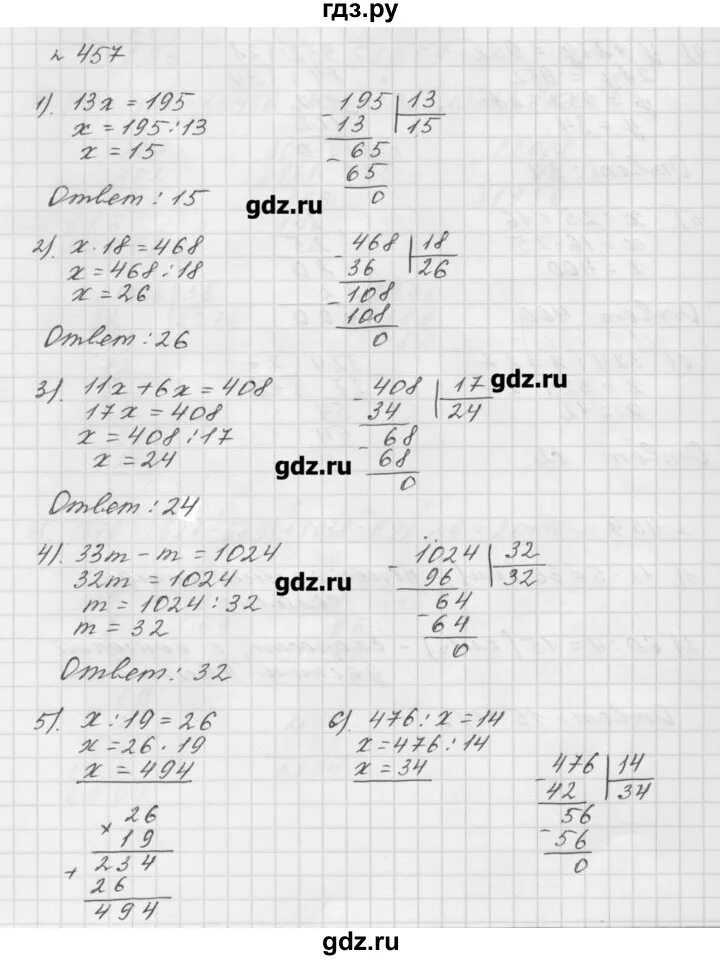 гдз.ру
№ 457
1). 13x = 195
x = 195 : 13
x = 15
195 | 13
- 13 | 15
65
- 65
0
Ответ : 15
gdz.ru
2). x · 18 = 468
x = 468 : 18
x = 26
- 468 | 18
36 | 26
- 108
108
0
Ответ : 26
3). 11x + 6x = 408
17x = 408
x = 408 : 17
x = 24
- 408 | 17
34 | 24
- 68
68
0
gdz.ru
gdz.ru
Ответ : 24
4). 33m - m = 1024
32m = 1024
m = 1024 : 32
m = 32
- 1024 | 32
96 | 32
64
- 64
0
gdz.ru
Ответ : 32
5). x : 19 = 26
x = 26 · 19
x = 494
26
× 19
+ 234
26
494
6). 476 : x = 14
x = 476 : 14
x = 34
- 476 | 14
42 | 34
56
- 56
0
gdz.ru